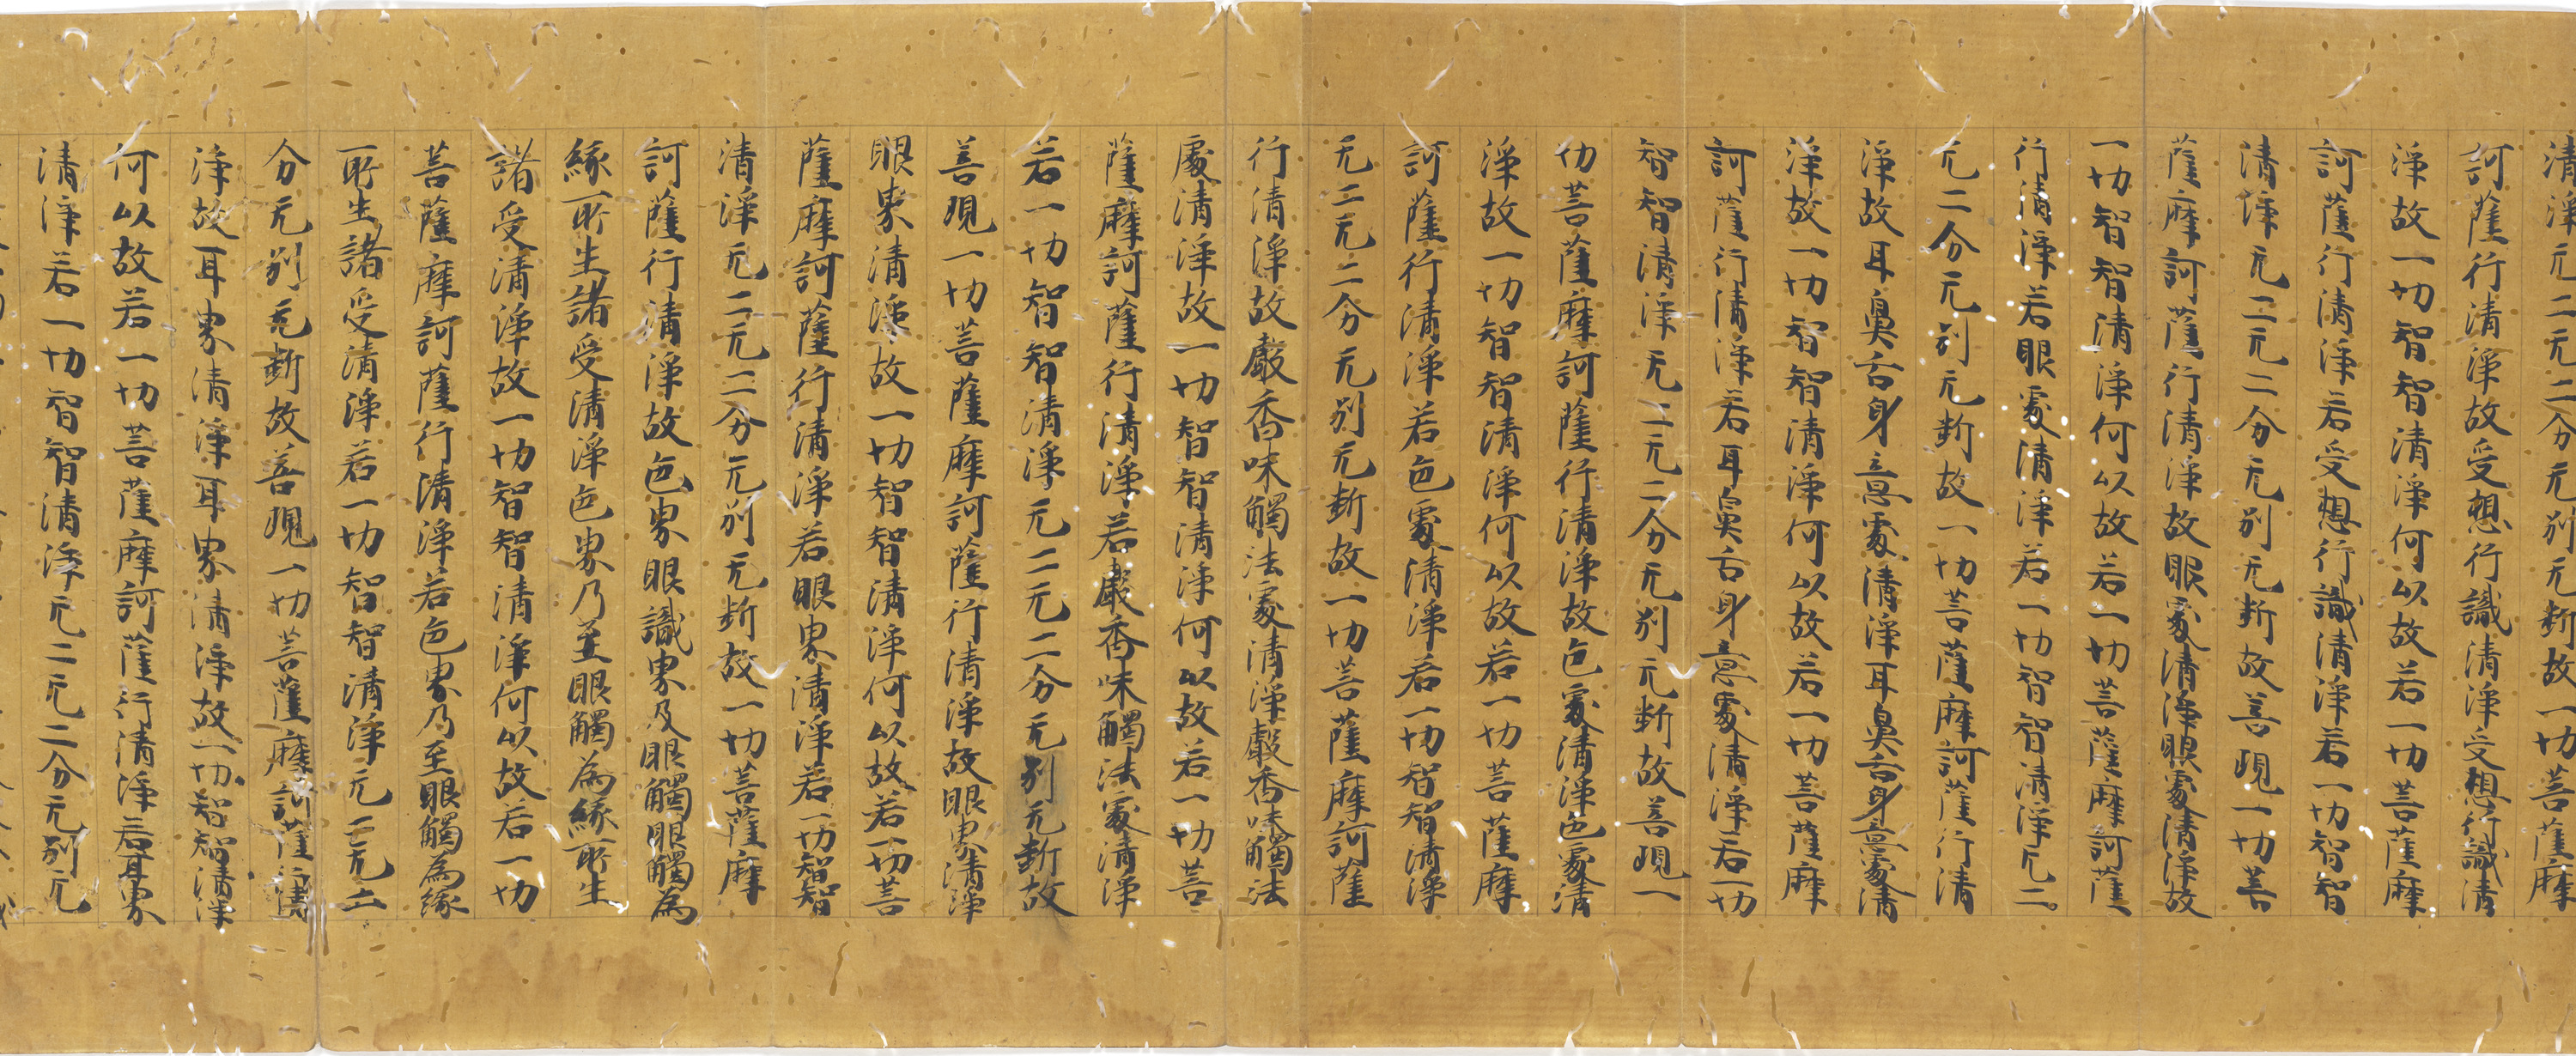 清淨无二无二分无別无斷故一切菩薩摩
訶薩行清淨故受想行識清淨受想行識清
淨故一切智智清淨何以故若一切菩薩摩
訶薩行清淨若受想行識清淨若一切智智
清淨无二无二分无別无斷故善現一切菩
薩摩訶薩行清淨故眼處清淨眼處清淨故
一切智智清淨何以故若一切菩薩摩訶薩
行清淨若眼處清淨若一切智智清淨无二
无二分无別无斷故一切菩薩摩訶薩行清
淨故耳鼻舌身意處清淨耳鼻舌身意處清
淨故一切智智清淨何以故若一切菩薩摩
訶薩行清淨若耳鼻舌身意處清淨若一切
智智清淨无二无二分无別无斷故善現一
切菩薩摩訶薩行清淨故色處清淨色處清
淨故一切智智清淨何以故若一切菩薩摩
訶薩行清淨若色處清淨若一切智智清淨
无二无二分无別无斷故一切菩薩摩訶薩
行清淨故聲香味觸法處清淨聲香味觸法
處清淨故一切智智清淨何以故若一切菩
薩摩訶薩行清淨若聲香味觸法處清淨
若一切智智清淨无二无二分无別无斷故
善現一切菩薩摩訶薩行清淨故眼界清淨
眼界清淨故一切智智清淨何以故若一切菩
薩摩訶薩行清淨若眼界清淨若一切智智
清淨无二无二分无別无斷故一切菩薩摩
訶薩行清淨故色界眼識界及眼觸眼觸為
緣所生諸受清淨色界乃至眼觸為緣所生
諸受清淨故一切智智清淨何以故若一切
菩薩摩訶薩行清淨若色界乃至眼觸為緣
所生諸受清淨若一切智智清淨无二无二
分无別无斷故善現一切菩薩摩訶薩行清
淨故耳界清淨耳界清淨故一切智智清淨
何以故若一切菩薩摩訶薩行清淨若耳界
清淨若一切智智清淨无二无二分无別无